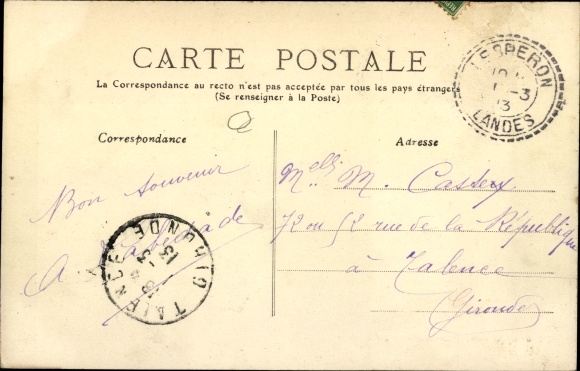 CARTE POSTALE
La Correspondance au recto n'est pas acceptée par tous les pays étrangers
(Se renseigner à la Poste)
Correspondance
Adresse
Bon souvenir
Melle M. Castex
72 ou 52 rue de la République
à Talence
(Gironde)
LESPERON
1-3
13
LANDES
TALENCE
GIRONDE